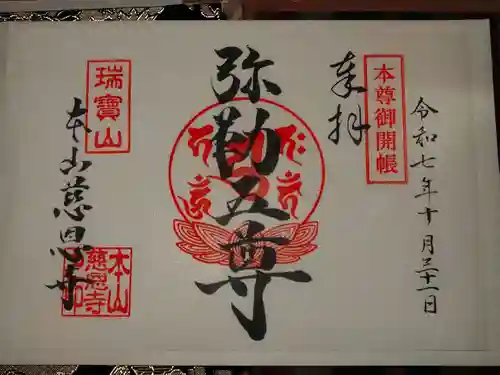 令和七年十月三十一日
本尊御開帳
奉拝
弥勒五尊
瑞寶山
本山慈恩寺
本山慈恩寺印